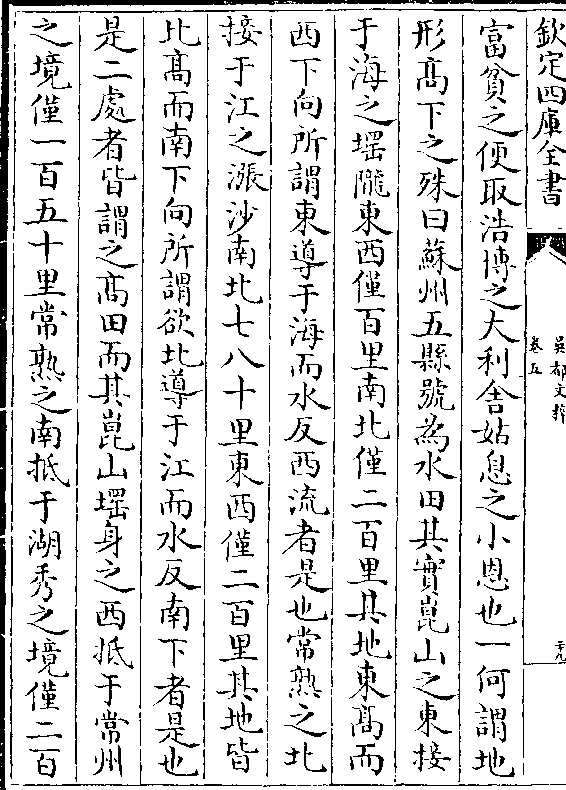 欽定四庫全書
吳都文粹
卷五
二十九
富貧之便取浩博之大利舍姑息之小恩也一何謂地
形髙下之殊曰蘇州五縣號為水田其實崑山之東接
于海之堽隴東西僅百里南北僅二百里其地東髙而
西下向所謂東導于海而水反西流者是也常熟之北
接于江之漲沙南北七八十里東西僅二百里其地皆
北髙而南下向所謂欲北導于江而水反南下者是也
是二處者皆謂之髙田而其崑山堽身之西抵于常州
之境僅一百五十里常熟之南抵于湖秀之境僅二百